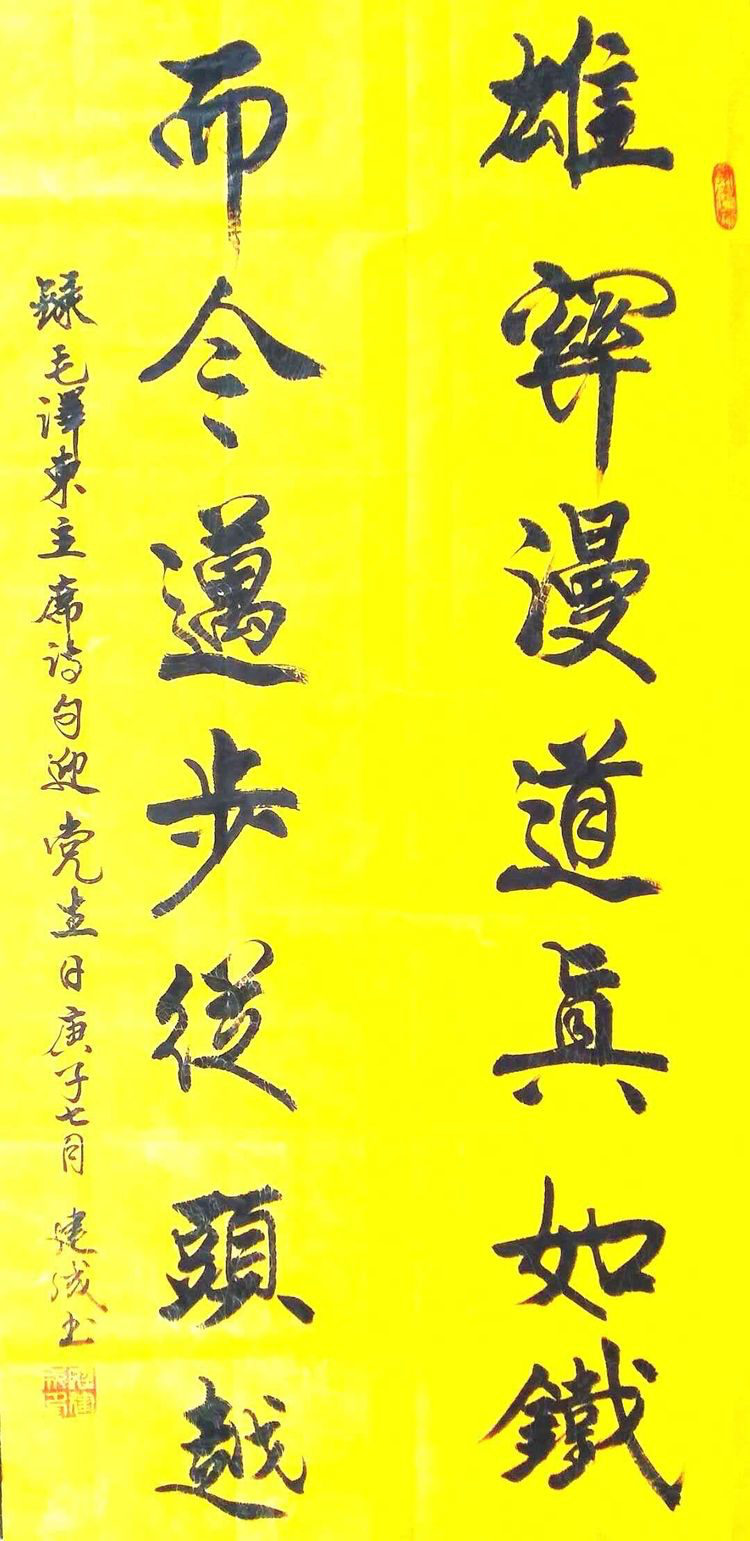 雄關漫道眞如鐵
而今邁步從頭越
録毛澤東主席诗句迎党生日庚子七月 建成书